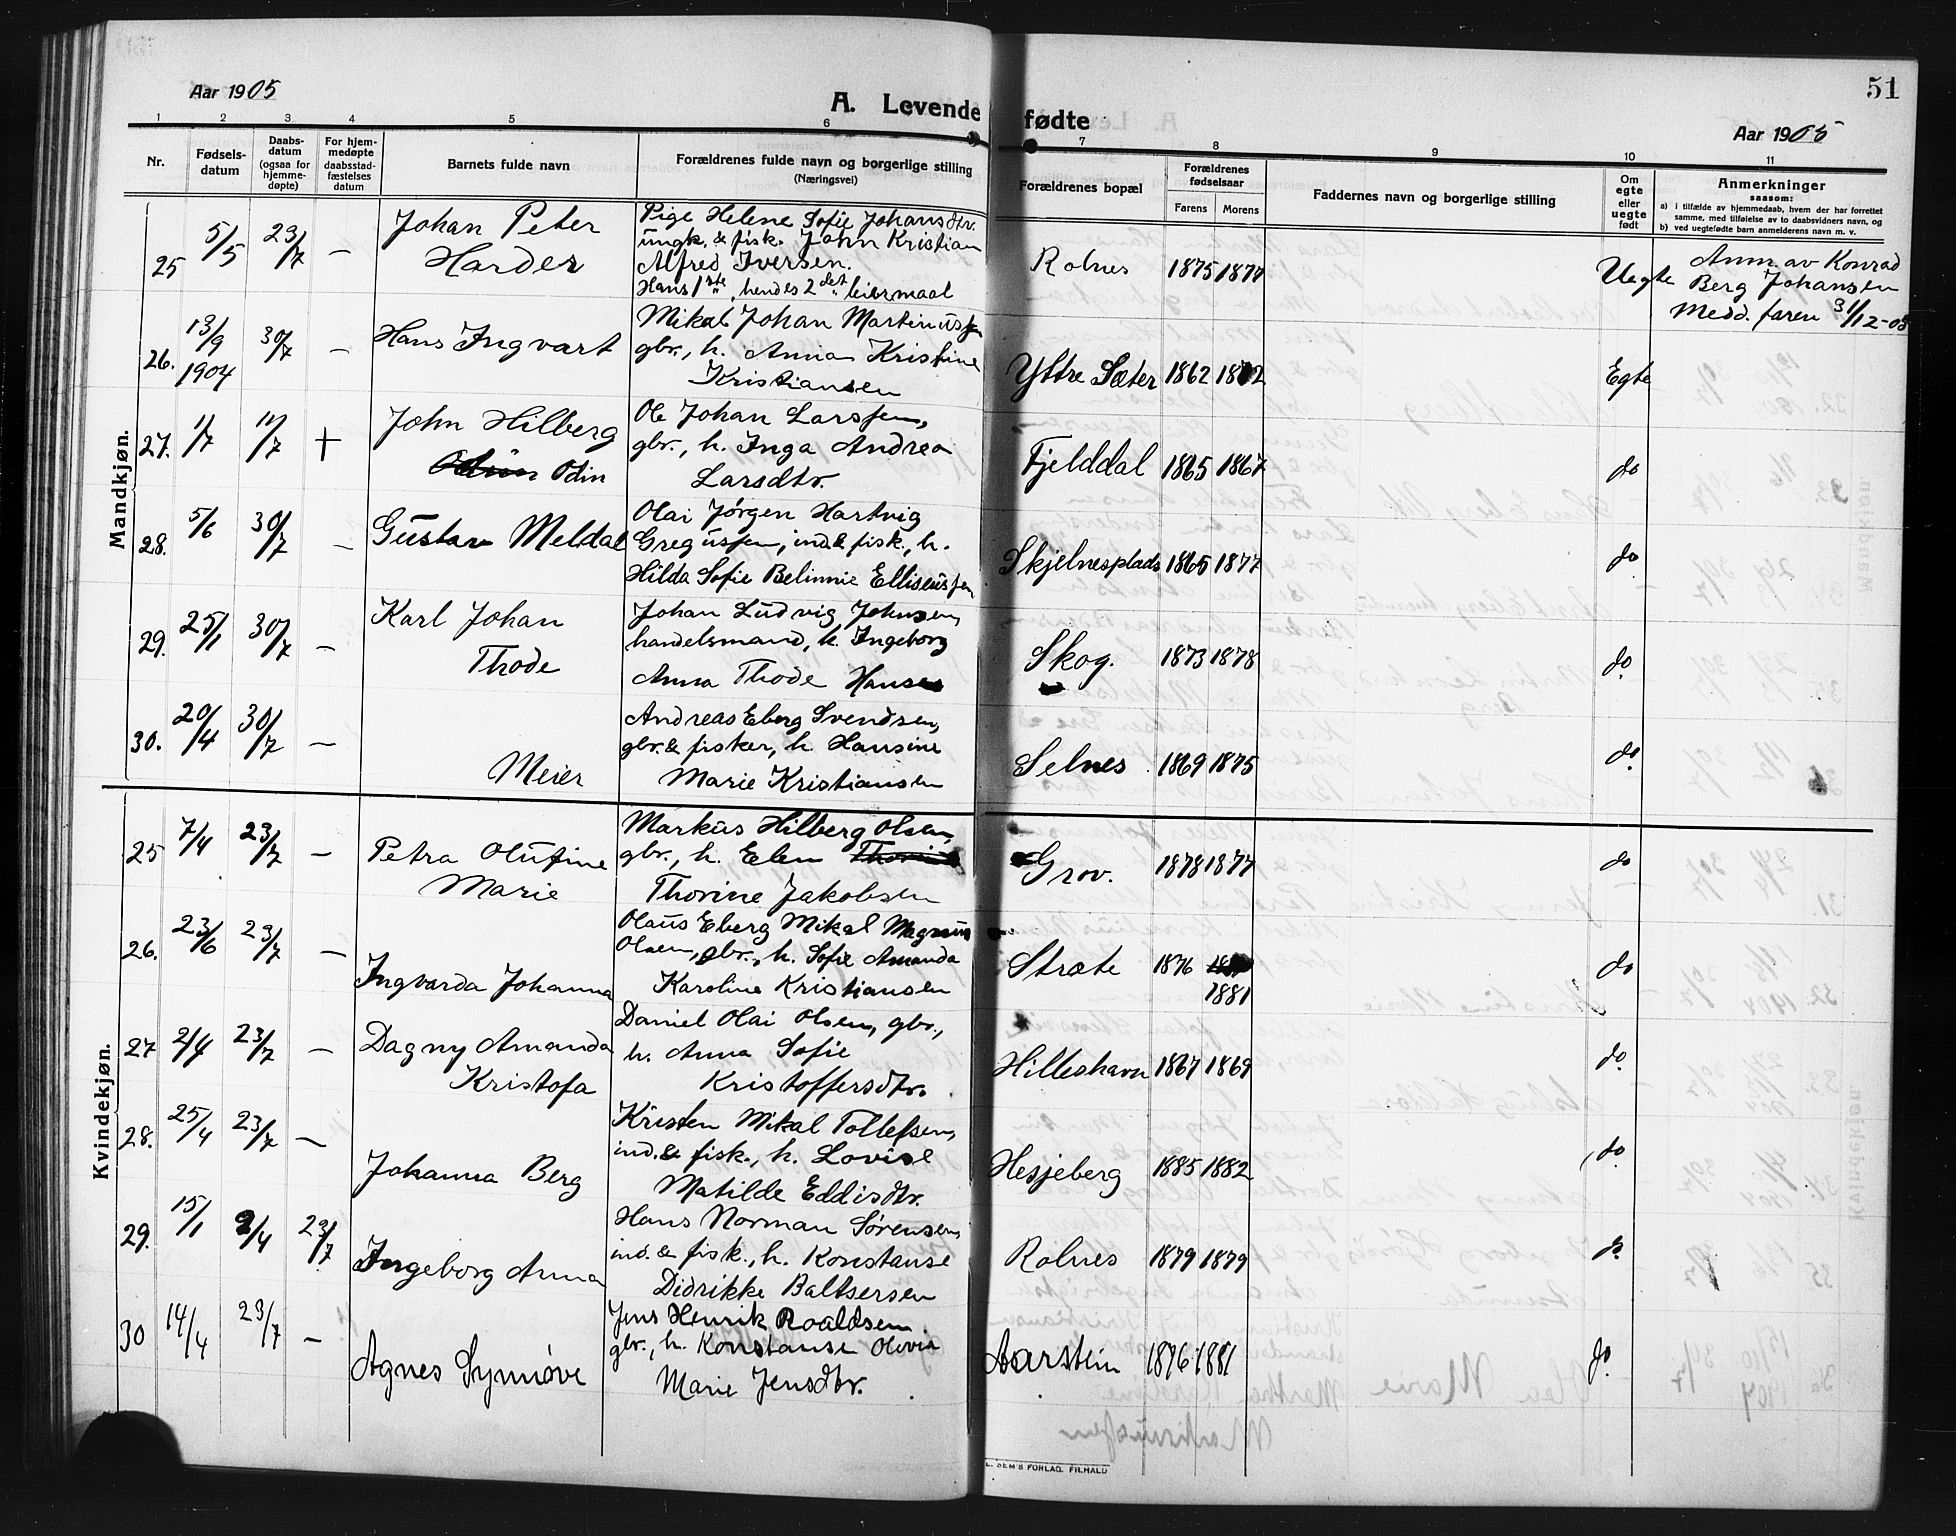 Aar 1905
A. Levende fødte
51
Aar 1905
1 2 3 4 5 6 7 8 9 10 11
Nr.
Fødsels-
datum
Daabs-
datum
(ogsaa for
hjemme-
døpte)
For hjem-
medøpte
daabsstad-
fæstelses
datum
Barnets fulde navn
Forældrenes fulde navn og borgerlige stilling
(Næringsvei)
Forældrenes bopæl
Forældrenes
fødselsaar
Farens Morens
Faddernes navn og borgerlige stilling
Om
egte
eller
uegte
født
Anmerkninger
saasom:
a) i tilfælde av hjemmedaab, hvem der har forrettet
samme, med tilføielse av to daabsvidners navn, og
b) ved uegtefødte barn anmelderens navn m. v.
Mandkjøn.
25 5/5 23/7 —
Johan Peter
Harder
Pige Helene Sofie Johansdtr.
ungk. & fisk. John Kristian
Alfred Iversen.
Hans 1ste, hendes 2det leiermaal
Rolnes 1875 1877 Uegte
Anm. av Konrad
Berg Johansen
Medd. faren 31/12-05
26. 13/9 1904 30/7 —
Hans Ingvart
Mikal Johan Martinussen
gbr., h. Anna Kristine
Kristiansen
Yttre Sæter 1862 Egte
27. 1/7 11/7 +
John Hilberg
Odin
Ole Johan Larssen,
gbr., h. Inga Andrea
Larsdtr.
Fjelddal 1865 1867 do
28. 5/6 30/7 —
Gustav Meldal
Olai Jørgen Hartvig
Gregussen, ind. & fisk., h.
Hilda Sofie Belinnie Elliseussen
Skjelnesplads 1865 1877 do
29. 25/1 30/7 —
Karl Johan
Thode
Johan Ludvig Johnsen,
handelsmand, h. Ingeborg
Anna Thode Hansen
Skog. 1873 1878 do.
30. 20/4 30/7 —
Meier
Andreas Eberg Svendsen,
gbr. & fisker, h. Hansine
Marie Kristiansen
Selnes 1869 1875 do.
Kvindekjøn.
25 7/4 23/7 —
Petra Olufine
Marie
Markus Hilberg Olsen,
gbr., h. Elen
Thorine Jakobsen
Grov. 1878 1877 do
26. 23/6 23/7 —
Ingvarda Johanna
Olaus Eberg Mikal Magnus
Olsen, gbr., h. Sofie Amanda
Karoline Kristiansen
Stræte 1876 1881 do
27 2/4 23/7 —
Dagny Amanda
Kristofa
Daniel Olai Olsen, gbr.,
h. Anna Sofie
Kristoffersdtr.
Hilleshavn 1867 1869 do.
28. 25/4 23/7 —
Johanna Berg
Kristen Mikal Tollefsen,
ind. & fisk., h. Lovise
Matilde Eddisdtr.
Hesjeberg 1885 1882 do.
29. 15/1 2/4 23/7
Ingeborg Anna
Hans Norman Sørensen,
ind. & fisk., h. Konstanse
Didrikke Baltsersen
Rolnes 1879 1879 do.
30 14/4 23/7 —
Agnes Synnøve
Jens Henrik Roaldsen
gbr., h. Konstanse Olovia
Marie Jensdtr.
Aarstein 1876 1881 do.
SEM'S FORLAG, F.HALD